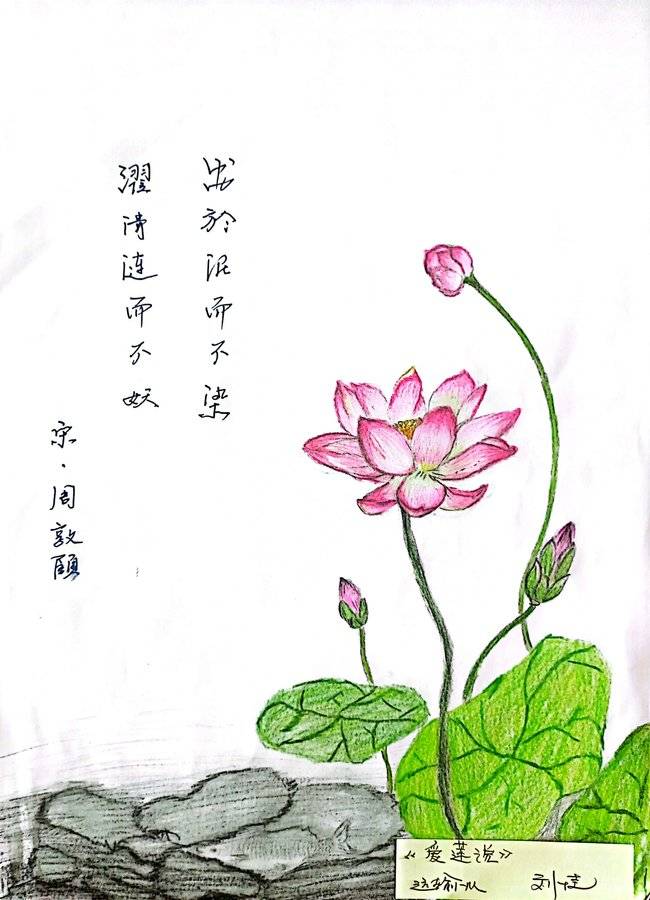 出於泥而不染
濯清涟而不妖
宋·周敦颐
《爱莲说》
刘